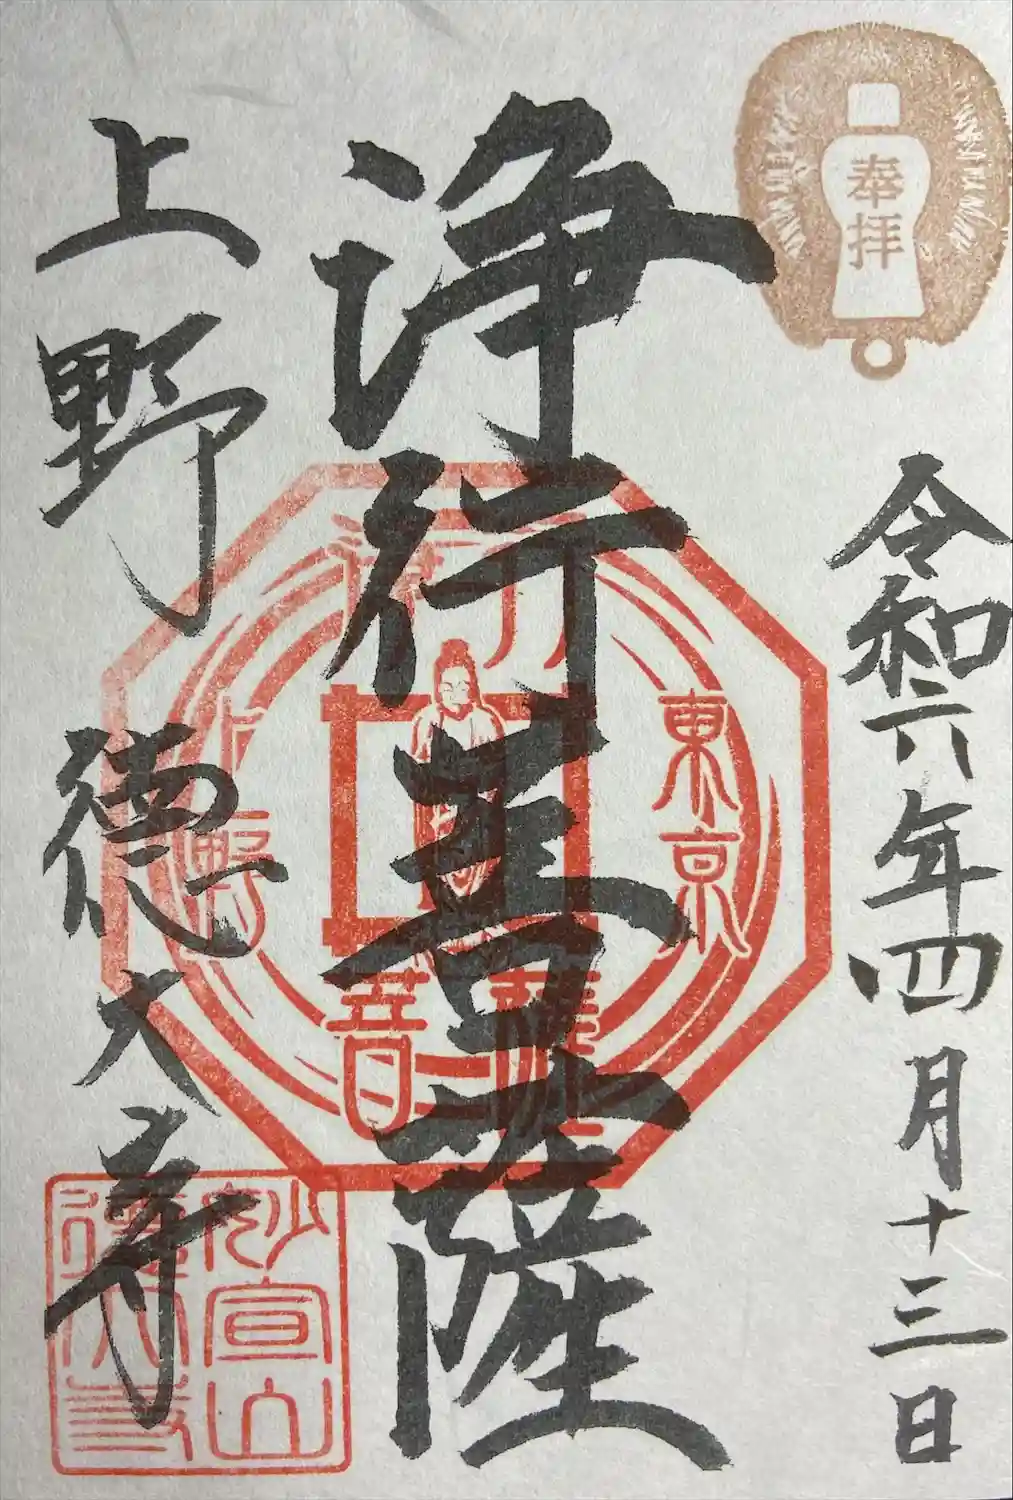 奉拝
令和六年四月十三日
浄行菩薩
上野 徳大寺
東京
上野
妙宣山
徳大寺